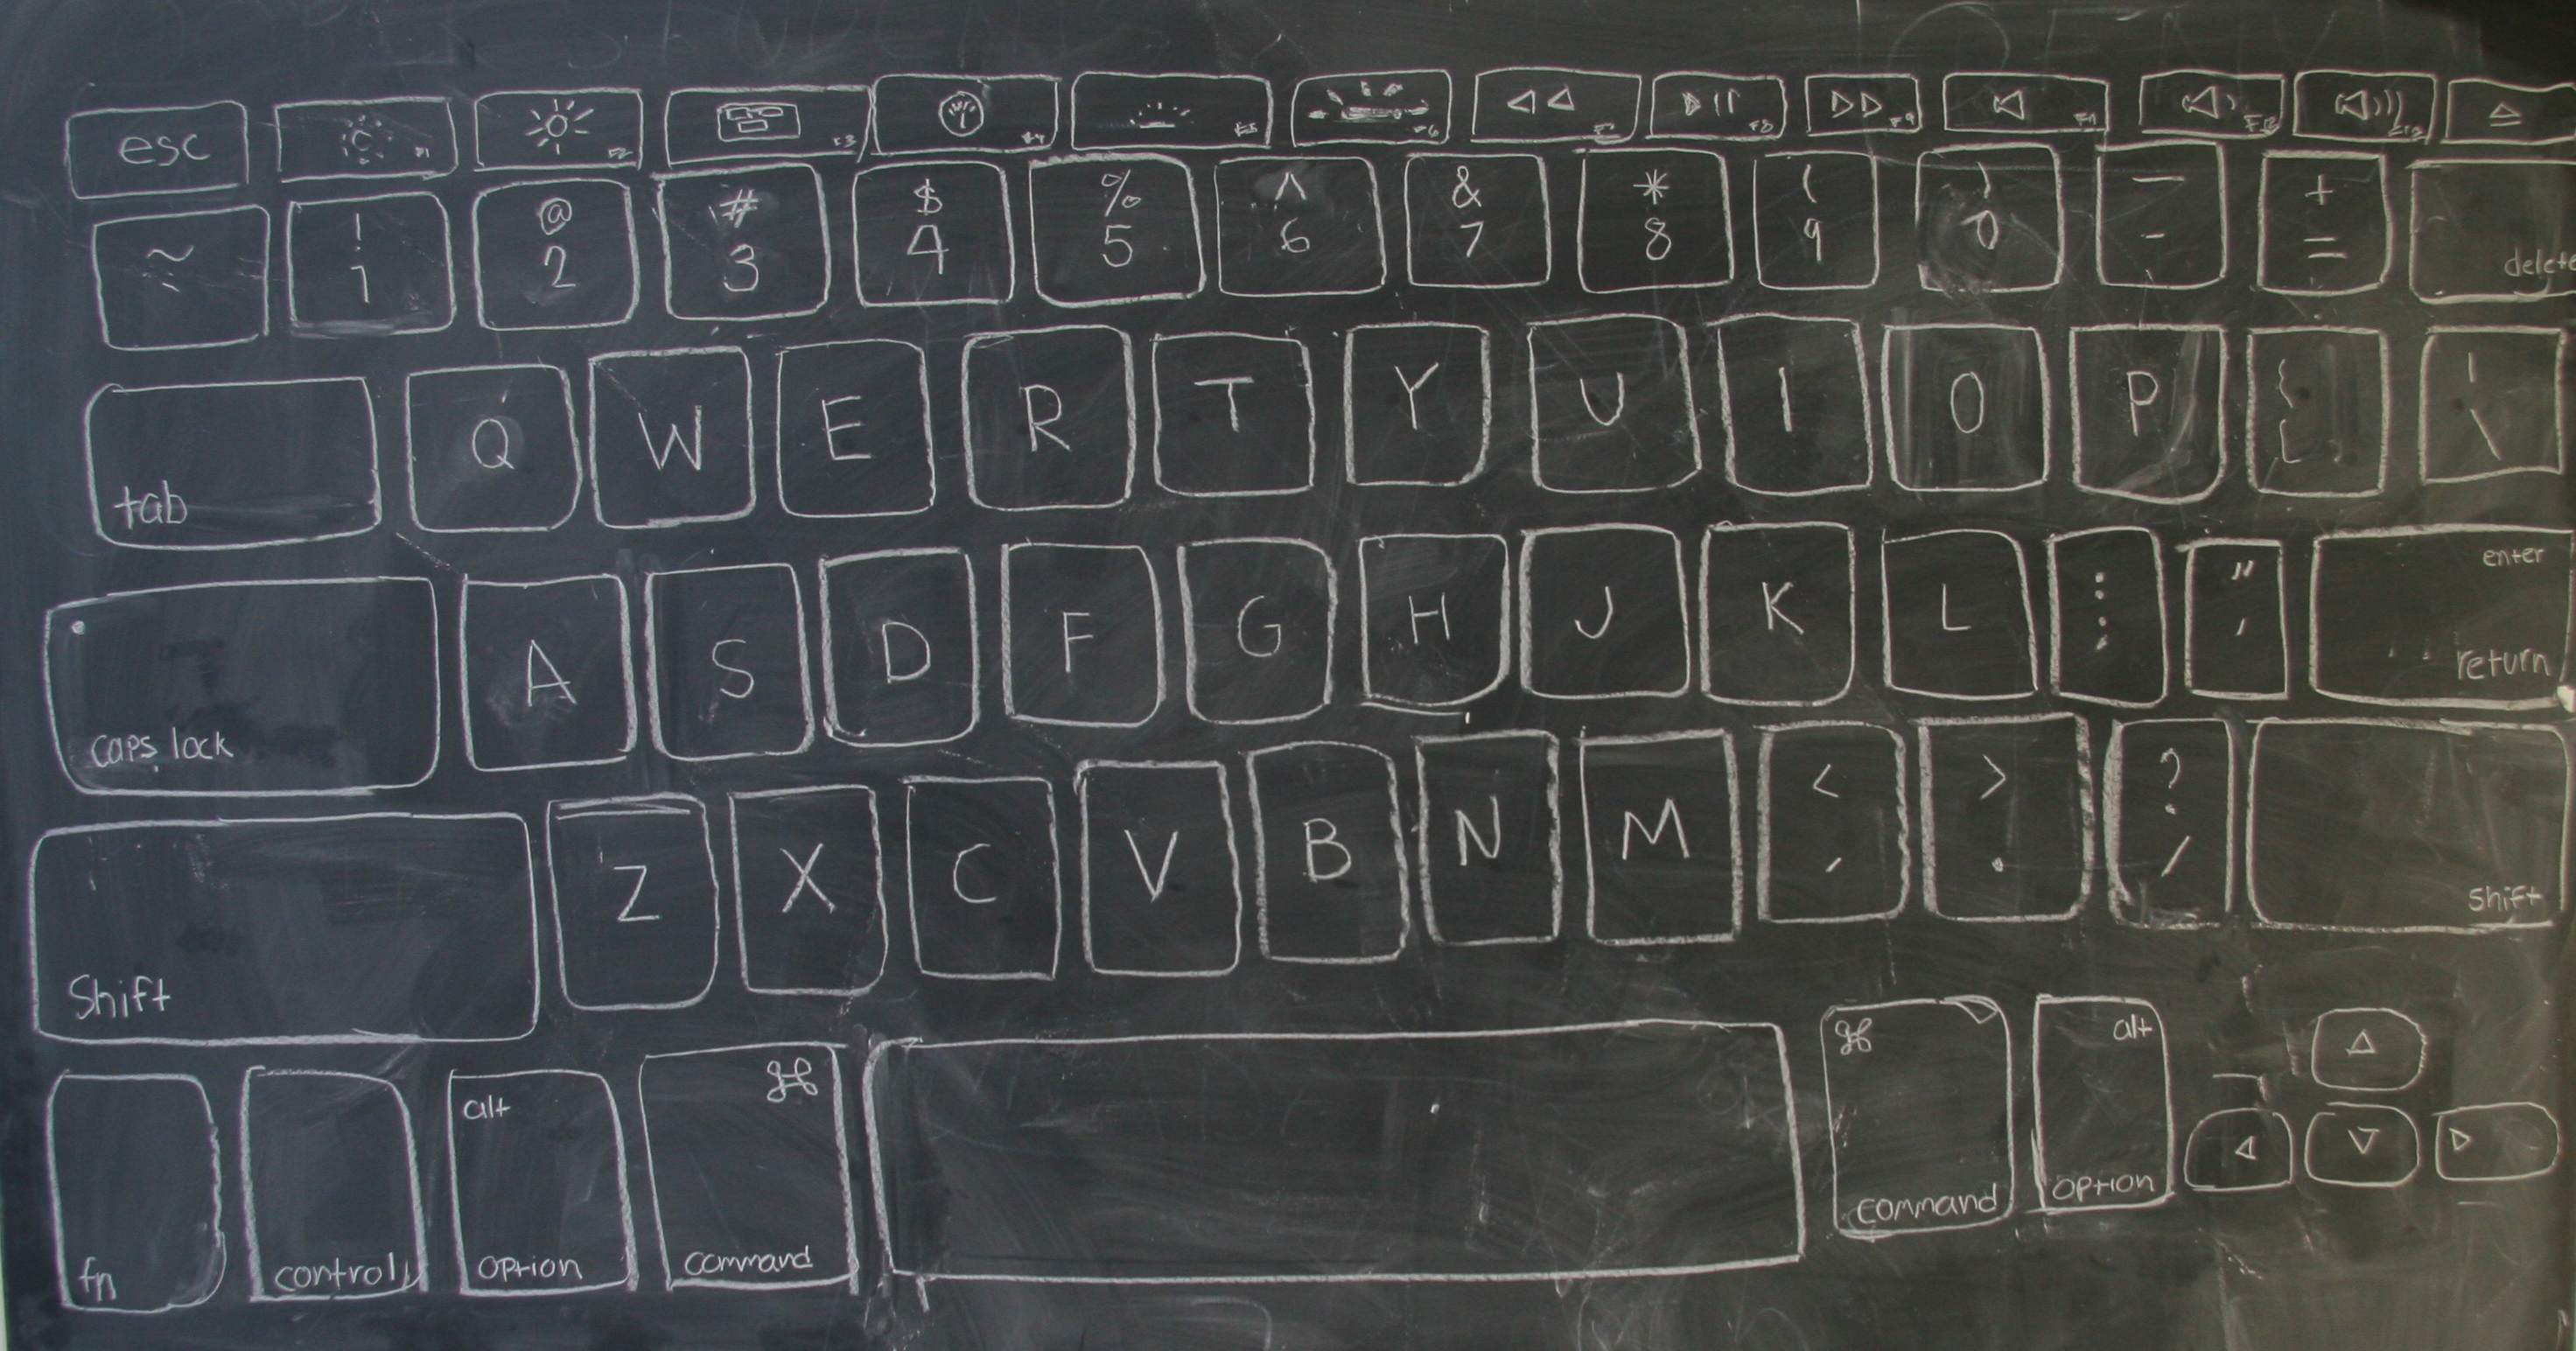 esc F1 F2 F3 F4 F5 F6 F7 F8 F9 F12
~ ! @ # $ % ^ & * ( ) — + 
` 1 2 3 4 5 6 7 8 9 0 - = delete
tab Q W E R T Y U I O P { [ | \
caps lock A S D F G H J K L : ; " ' enter return
Shift Z X C V B N M < , > . ? / Shift
fn control alt option ⌘ command ⌘ command alt option